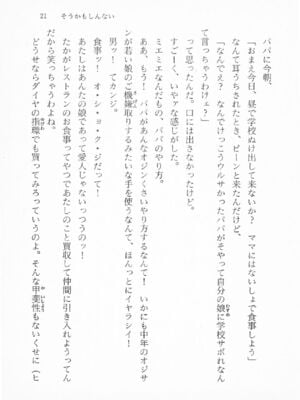 21　そうかもしんない
パパに今朝、
「おまえ今日、昼で学校ぬけ出して来ないか？　ママにはないしょで食事しよう」
なんて耳うちされたとき、ピーンと来たんだけど、
「なんでェ？　なんでけっこうウルサかったパパがそやって自分の娘に学校サボれなん
て言っちゃうわけェ？」
って思ったんだ。口には出さなかったけど。
すごーく、いやァな感じがした。
ミエミエなんだもの、パパのやり方。
ああ、もう！　パパがあんなオジンくさいやり方するなんて！　いかにも中年のオジサ
ンが若い娘のご機嫌取りするみたいな手を使うなんて、ほんっとにイヤラシイ！
男ッ！　てカンジ。
食事ッ！　オ・シ・ョ・ク・ジだって！
あたしはあんたの娘であって愛人じゃないっつうのッ！
たかがレストランのお食事ってやつであたしのこと買収して仲間に引き入れようってん
だから笑っちゃうわよね。
どうせならダイヤの指環でも買ってみろっていうのよ。そんな甲斐性もないくせに（ヒ